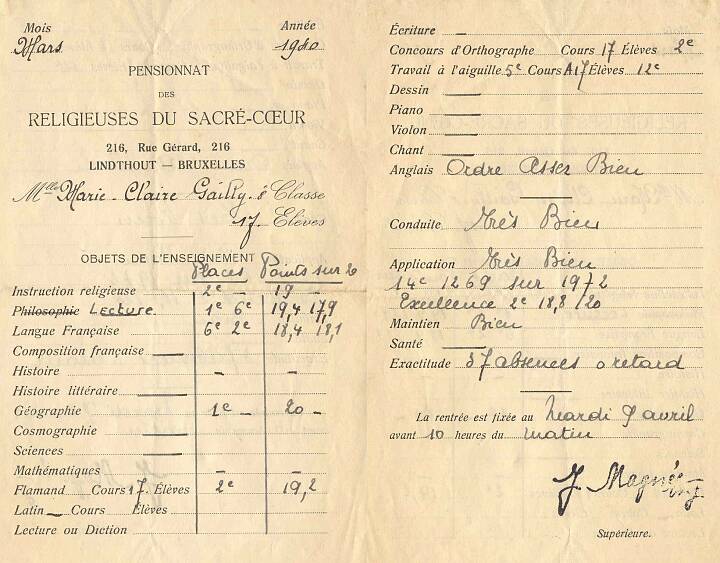 Mois Année
Mars 1940
PENSIONNAT
DES
RELIGIEUSES DU SACRÉ-CŒUR
216, Rue Gérard, 216
LINDTHOUT — BRUXELLES
Mlle Marie-Claire Gailly. 8e Classe
17. Elèves
OBJETS DE L'ENSEIGNEMENT Places Points sur 20
Instruction religieuse 2e — 19 —
Philosophie Lecture 1e 6e 19,4 17,9
Langue Française 6e 2e 18,4 18,1
Composition française
Histoire — —
Histoire littéraire
Géographie 1e — 20 —
Cosmographie
Sciences
Mathématiques — —
Flamand Cours 17. Élèves 2e 19,2
Latin — Cours Élèves
Lecture ou Diction
Écriture —
Concours d'Orthographe Cours 17 Élèves 2e
Travail à l'aiguille 5e Cours A 17 Élèves 12e
Dessin
Piano
Violon
Chant
Anglais Ordre Asser Bien
Conduite Très Bien
Application Très Bien
14e 1269 sur 1972
Excellence 2e 18,8/20
Maintien Bien
Santé
Exactitude 37 absences 0 retard
La rentrée est fixée au Mardi 9 avril
avant 10 heures du matin
J. Magnée
Supérieure.